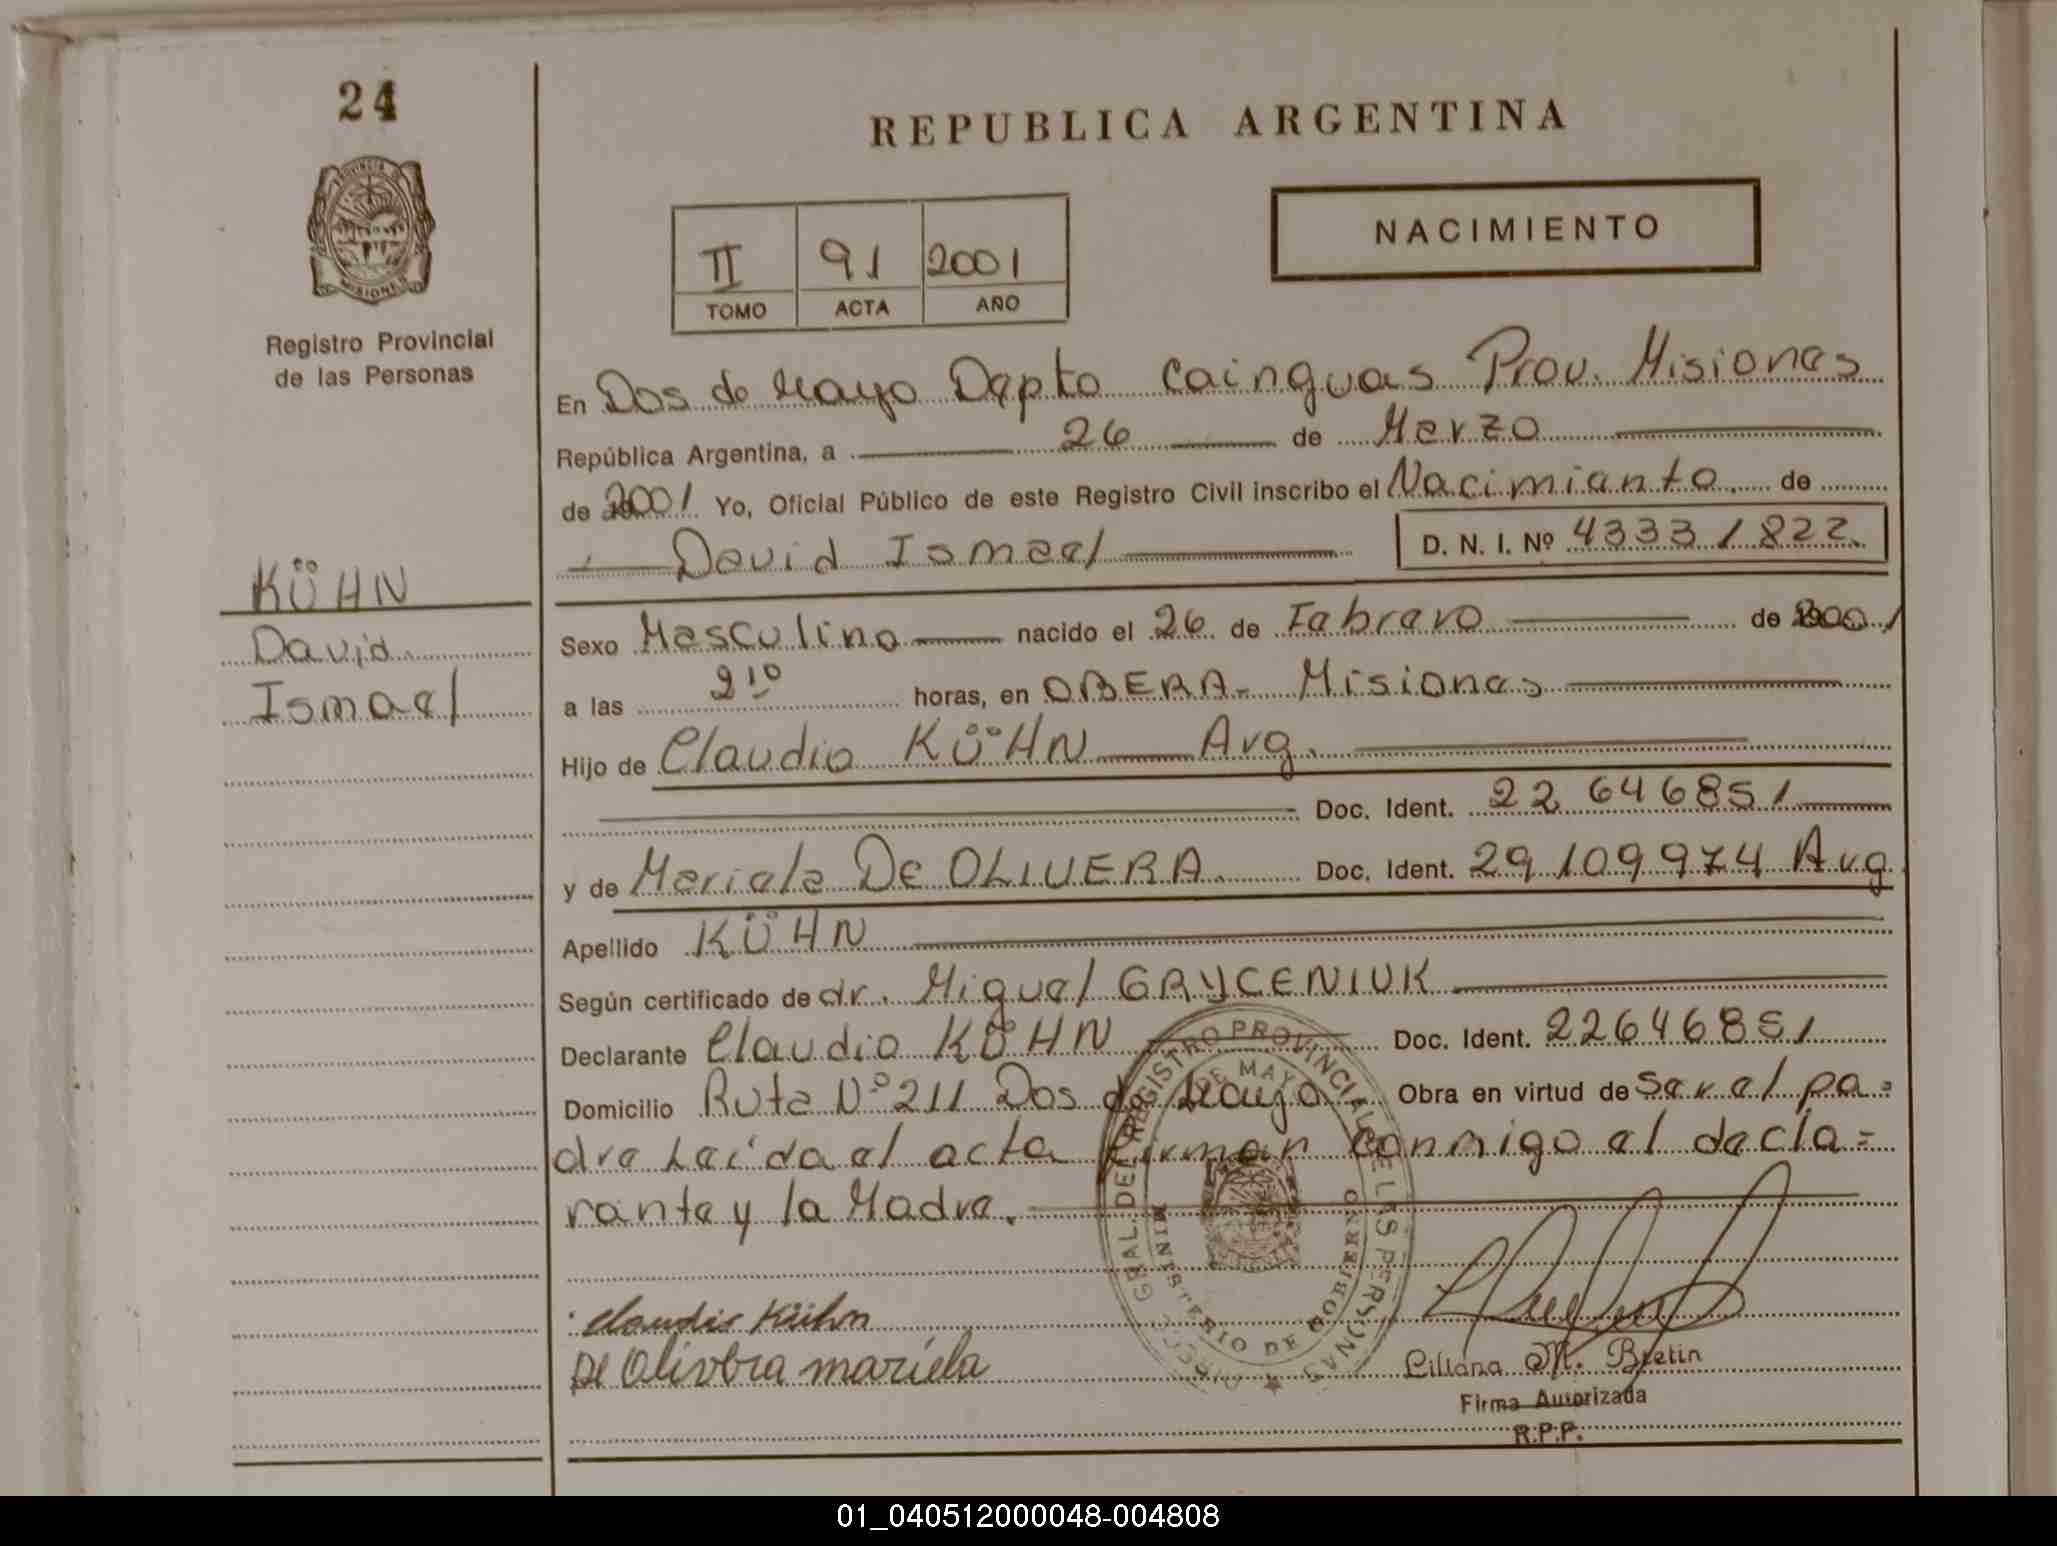 24
REPUBLICA ARGENTINA
PROVINCIA DE
MISIONES
Registro Provincial
de las Personas
II 91 2001
TOMO ACTA AÑO
NACIMIENTO
En Dos de Mayo Depto Cainguas Prov. Misiones
República Argentina, a 26 de Marzo
de 2001 Yo, Oficial Público de este Registro Civil inscribo el Nacimiento de
David Ismael D. N. I. Nº 43331822
KÜHN
David
Ismael
Sexo Masculino nacido el 26 de Febrero de 2001
a las 2¹⁰ horas, en OBERA - Misiones
Hijo de Claudio KÜHN Arg.
Doc. Ident. 22 646851
y de Mariela De OLIVERA. Doc. Ident. 29109974 Arg.
Apellido KÜHN
Según certificado de dr. Miguel GRYCENIUK
Declarante Claudio KÜHN Doc. Ident. 22646851
Domicilio Ruta Nº 211 Dos de Mayo Obra en virtud de ser el pa=
dre Leída el acta firman conmigo el decla=
rante y la Madre.
DIRECC. GRAL. DEL REGISTRO PROVINCIAL DE LAS PERSONAS
DE MAYO
MINISTERIO DE GOBIERNO
Claudio Kühn
De Olivera mariela
Liliana M. Bretin
Firma Autorizada
R.P.P.
01_040512000048-004808